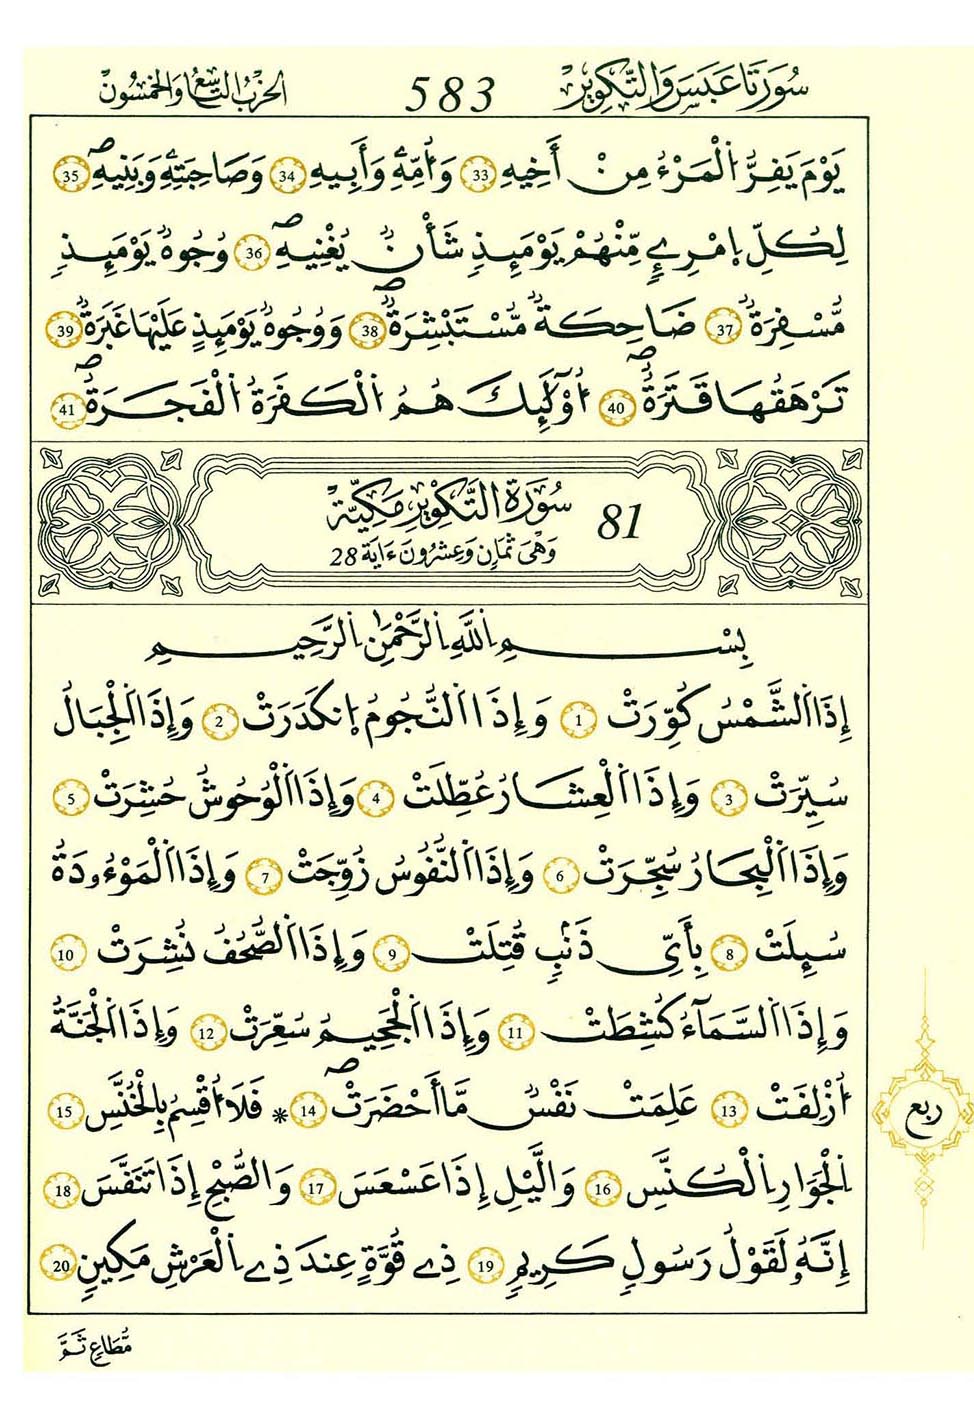 سُورَتَا عَبَسَ وَالتَّكْوِيرِ 583 الحِزْبُ التَّاسِعُ وَالخَمْسُونَ
يَوْمَ يَفِرُّ اُ۬لْمَرْءُ مِنْ أَخِيهِ 33 وَأُمِّهِۦ وَأَبِيهِ 34 وَصَٰحِبَتِهِۦ وَبَنِيهِۖ 35
لِكُلِّ اِ۪مْرِےٕٖ مِّنْهُمْ يَوْمَئِذٖ شَأْنٞ يُغْنِيهِۖ 36 وُجُوهٞ يَوْمَئِذٖ
مُّسْفِرَةٞ 37 ضَاحِكَةٞ مُّسْتَبْشِرَةٞۖ 38 وَوُجُوهٞ يَوْمَئِذٍ عَلَيْهَا غَبَرَةٞ 39
تَرْهَقُهَا قَتَرَةٌۖ 40 اُوْلَٰٓئِكَ هُمُ اُ۬لْكَفَرَةُ اُ۬لْفَجَرَةُۖ 41
81 سُورَةُ التَّكْوِيرِ مَكِّيَّة
وَهْيَ ثَمَانٍ وَعِشْرُونَ ءَايَة 28
بِسْمِ اِ۬للَّهِ اِ۬لرَّحْمَٰنِ اِ۬لرَّحِيمِ
إِذَا اَ۬لشَّمْسُ كُوِّرَتْ 1 وَإِذَا اَ۬لنُّجُومُ اُ۪نكَدَرَتْ 2 وَإِذَا اَ۬لْجِبَالُ
سُيِّرَتْ 3 وَإِذَا اَ۬لْعِشَارُ عُطِّلَتْ 4 وَإِذَا اَ۬لْوُحُوشُ حُشِرَتْ 5
وَإِذَا اَ۬لْبِحَارُ سُجِّرَتْ 6 وَإِذَا اَ۬لنُّفُوسُ زُوِّجَتْ 7 وَإِذَا اَ۬لْمَوْءُۥدَةُ
سُئِلَتْ 8 بِأَيِّ ذَنۢبٖ قُتِلَتْ 9 وَإِذَا اَ۬لصُّحُفُ نُشِرَتْ 10
وَإِذَا اَ۬لسَّمَآءُ كُشِطَتْ 11 وَإِذَا اَ۬لْجَحِيمُ سُعِّرَتْ 12 وَإِذَا اَ۬لْجَنَّةُ
أُزْلِفَتْ 13 عَلِمَتْ نَفْسٞ مَّا أَحْضَرَتْۖ 14 * فَلَا أُقْسِمُ بِالْخُنَّسِ 15
اِ۬لْجَوَارِ اِ۬لْكُنَّسِ 16 وَالَّيْلِ إِذَا عَسْعَسَ 17 وَالصُّبْحِ إِذَا تَنَفَّسَ 18
إِنَّهُۥ لَقَوْلُ رَسُولٖ كَرِيمٖ 19 ذِے قُوَّةٍ عِندَ ذِے اِ۬لْعَرْشِ مَكِينٖ 20
ربع
مُّطَاعٖ ثَمَّ